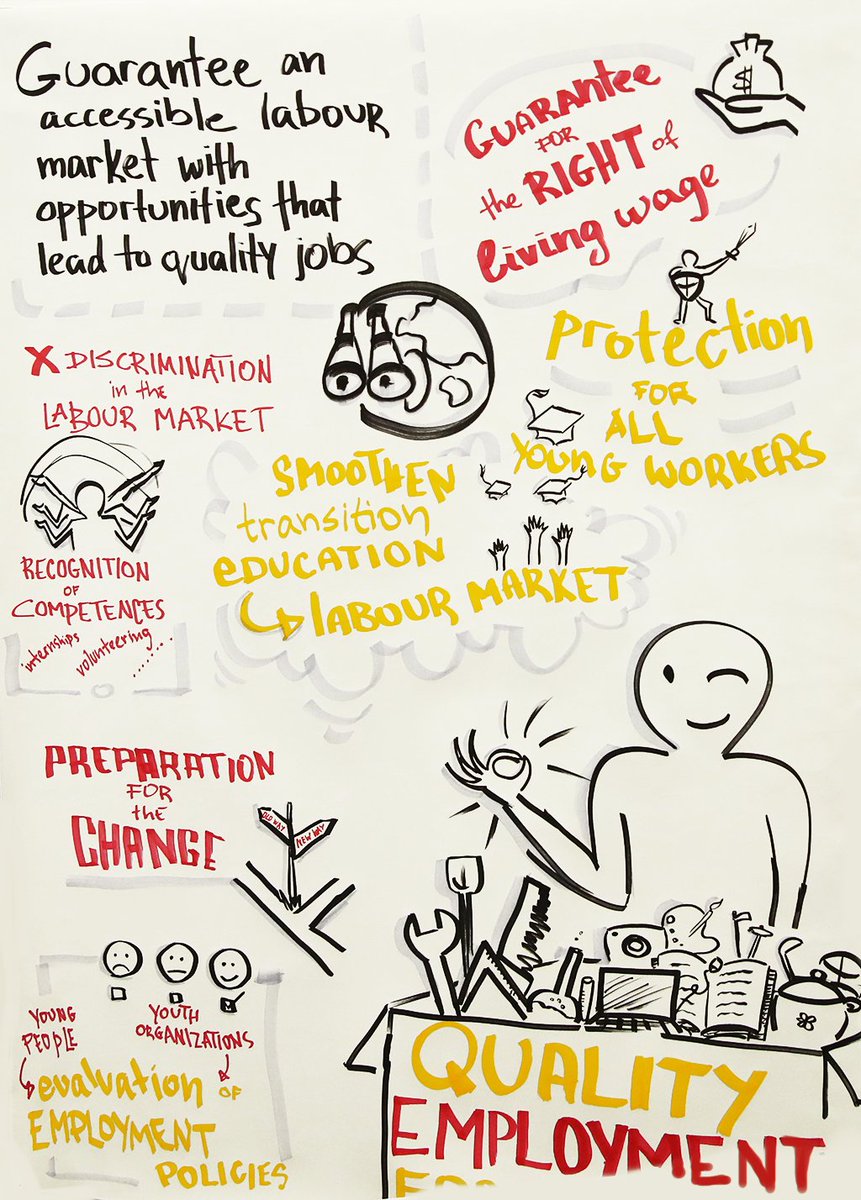 Guarantee an
accessible labour
market with
opportunities that
lead to quality jobs
GUARANTEE
FOR
the RIGHT of
living wage
$
Protection
FOR
ALL
YOUNG WORKERS
X DISCRIMINATION
in the
LABOUR MARKET
SMOOTHEN
transition
EDUCATION
LABOUR MARKET
RECOGNITION
OF
COMPETENCES
internships
volunteering ........
PREPARATION
FOR
the
CHANGE
OLD WAY
NEW WAY
YOUNG
PEOPLE
YOUTH
ORGANIZATIONS
evaluation OF
EMPLOYMENT
POLICIES
QUALITY
EMPLOYMENT